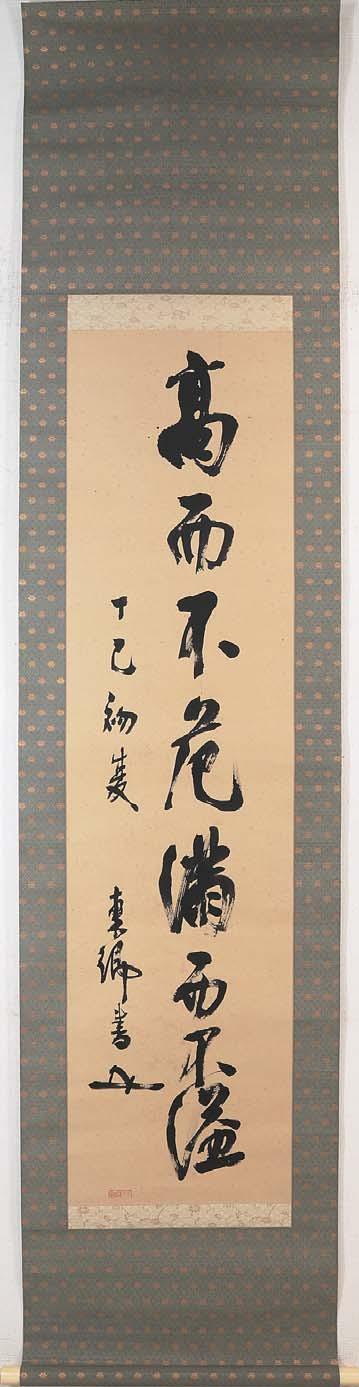 高而不危満而不溢
丁巳初夏
東郷書